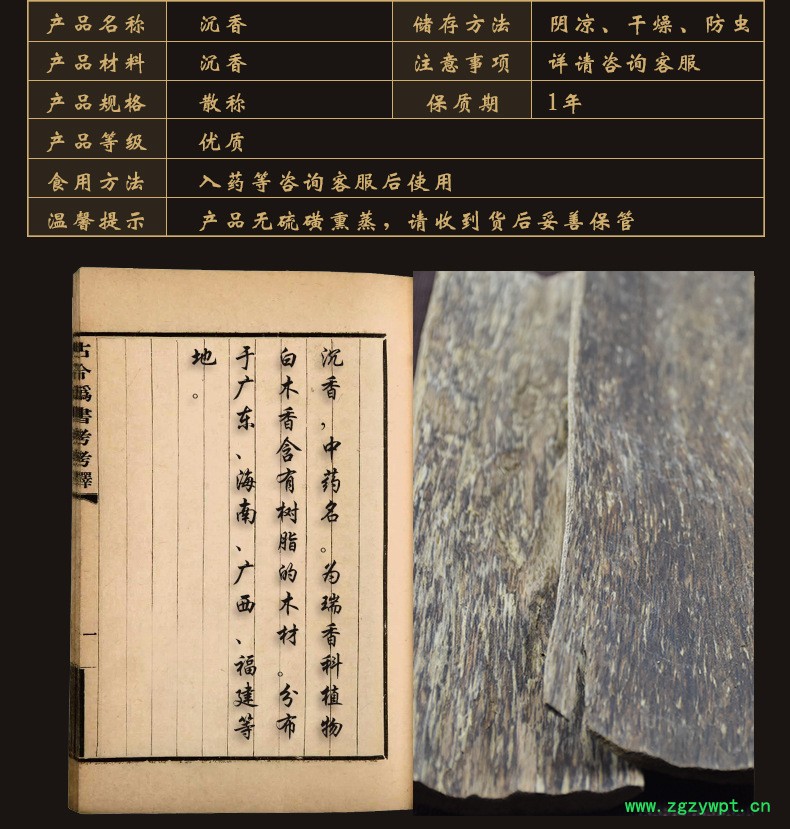 产品名称 沉香 储存方法 阴凉、干燥、防虫
产品材料 沉香 注意事项 详请咨询客服
产品规格 散称 保质期 1年
产品等级 优质
食用方法 入药等咨询客服后使用
温馨提示 产品无硫磺熏蒸，请收到货后妥善保管
沉香，中药名。为瑞香科植物
白木香含有树脂的木材。分布
于广东、海南、广西、福建等
地。
古今偽書考考釋
一
www.zgzywpt.cn